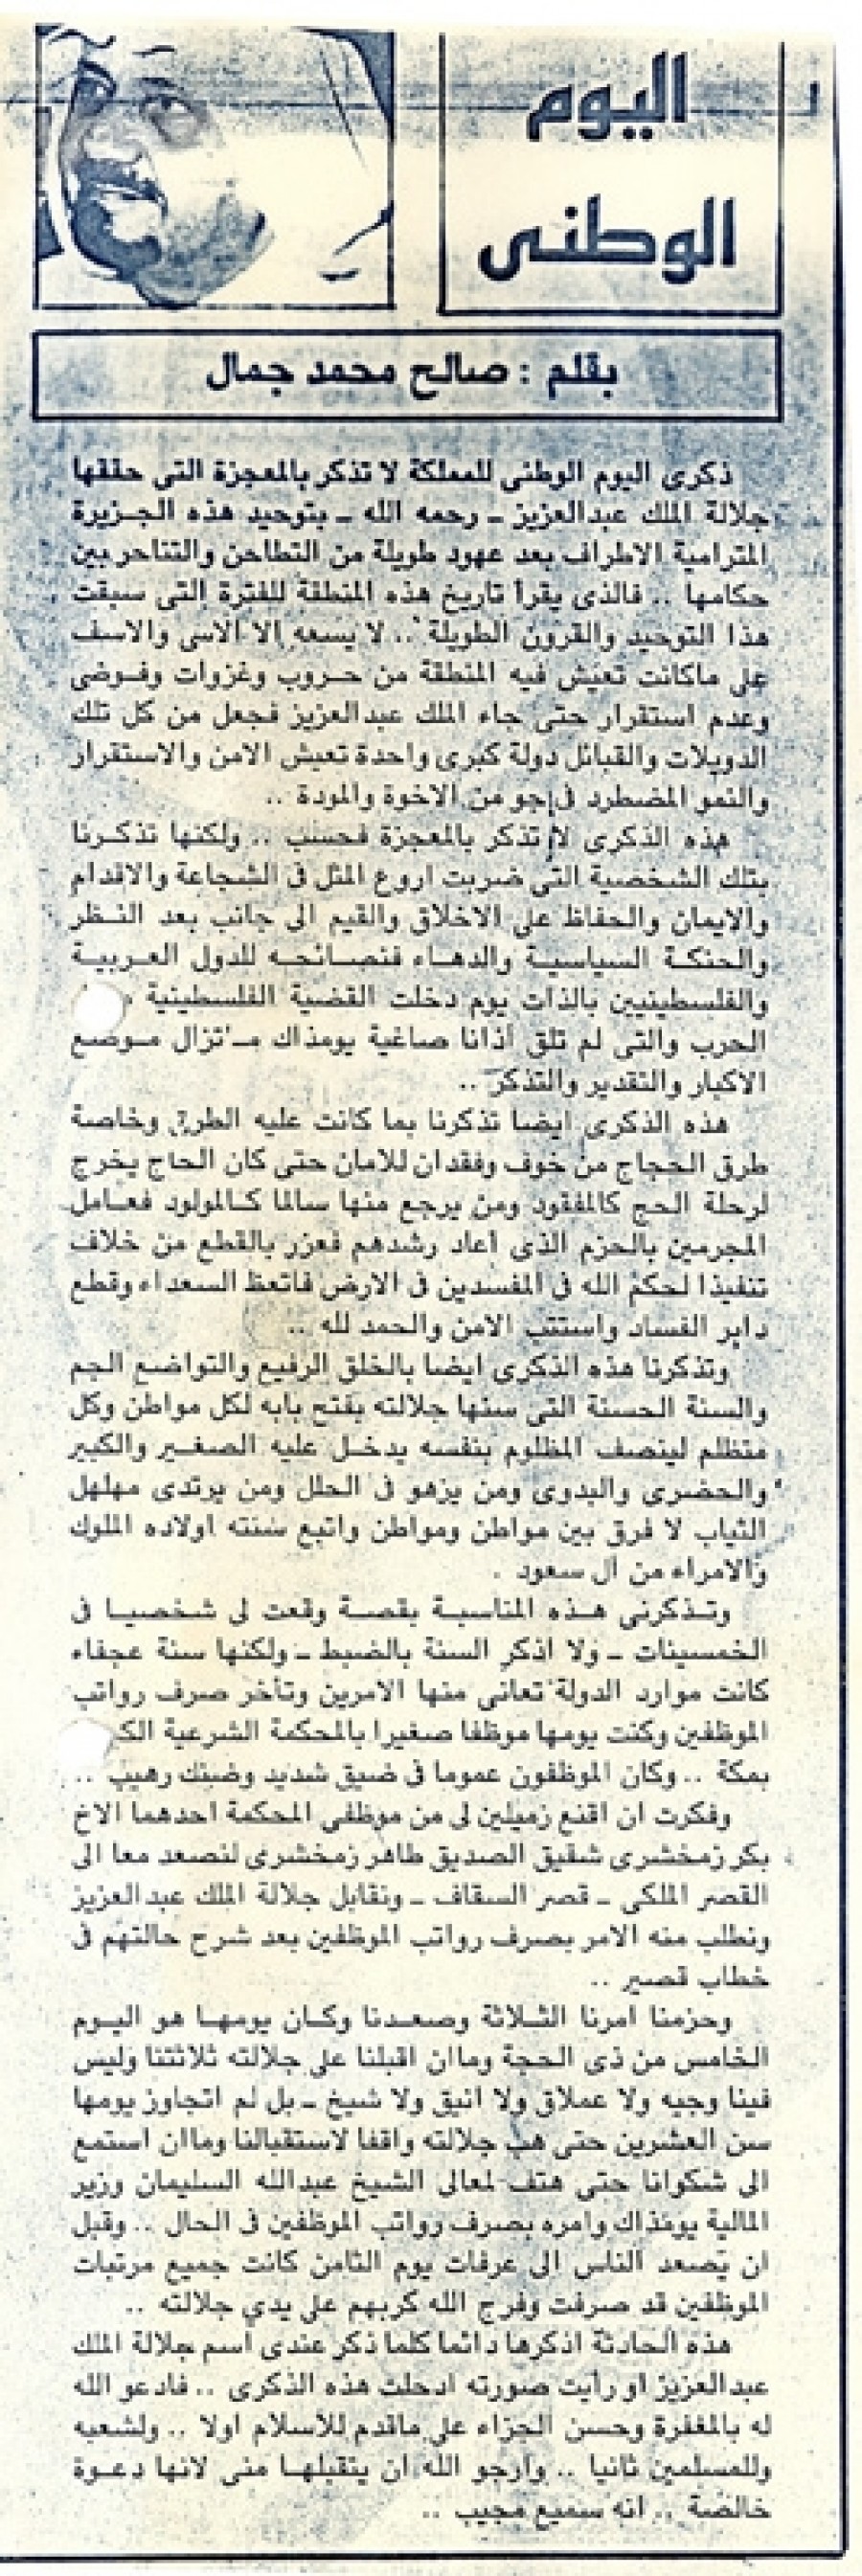 اليوم
الوطنى
بقلم : صالح محمد جمال
ذكرى اليوم الوطنى للمملكة لا تذكر بالمعجزة التى حققها
جلالة الملك عبدالعزيز ـ رحمه الله ـ بتوحيد هذه الجزيرة
المترامية الاطراف بعد عهود طويلة من التطاحن والتناحر بين
حكامها .. فالذى يقرأ تاريخ هذه المنطقة للفترة التى سبقت
هذا التوحيد والقرون الطويلة .. لا يسعه الا الاسى والاسف
على ماكانت تعيش فيه المنطقة من حروب وغزوات وفوضى
وعدم استقرار حتى جاء الملك عبدالعزيز فجعل من كل تلك
الدويلات والقبائل دولة كبرى واحدة تعيش الامن والاستقرار
والنمو المضطرد فى جو من الاخوة والمودة ..
هذه الذكرى لا تذكر بالمعجزة فحسب .. ولكنها تذكرنا
بتلك الشخصية التى ضربت اروع المثل فى الشجاعة والاقدام
والايمان والحفاظ على الاخلاق والقيم الى جانب بعد النظر
والحنكة السياسية والدهاء فنصائحه للدول العربية
والفلسطينيين بالذات يوم دخلت القضية الفلسطينية
الحرب والتى لم تلق أذانا صاغية يومذاك مـاتزال موضع
الاكبار والتقدير والتذكر ..
هذه الذكرى ايضا تذكرنا بما كانت عليه الطرق وخاصة
طرق الحجاج من خوف وفقدان للامان حتى كان الحاج يخرج
لرحلة الحج كالمفقود ومن يرجع منها سالما كالمولود فعامل
المجرمين بالحزم الذى أعاد رشدهم فعزر بالقطع من خلاف
تنفيذا لحكم الله فى المفسدين فى الارض فاتعظ السعداء وقطع
دابر الفساد واستتب الامن والحمد لله ..
وتذكرنا هذه الذكرى ايضا بالخلق الرفيع والتواضع الجم
والسنة الحسنة التى سنها جلالته بفتح بابه لكل مواطن وكل
متظلم لينصف المظلوم بنفسه يدخل عليه الصغير والكبير
والحضرى والبدوى ومن يزهو فى الحلل ومن يرتدى مهلهل
الثياب لا فرق بين مواطن ومواطن واتبع سنته اولاده الملوك
والامراء من آل سعود .
وتذكرنى هذه المناسبة بقصة وقعت لى شخصيا فى
الخمسينات ـ ولا اذكر السنة بالضبط ـ ولكنها سنة عجفاء
كانت موارد الدولة تعانى منها الامرين وتأخر صرف رواتب
الموظفين وكنت يومها موظفا صغيرا بالمحكمة الشرعية
بمكة .. وكان الموظفون عموما فى ضيق شديد وضنك رهيب ..
وفكرت ان اقنع زميلين لى من موظفى المحكمة احدهما الاخ
بكر زمخشرى شقيق الصديق طاهر زمخشرى لنصعد معا الى
القصر الملكى ـ قصر السقاف ـ ونقابل جلالة الملك عبدالعزيز
ونطلب منه الامر بصرف رواتب الموظفين بعد شرح حالتهم فى
خطاب قصير ..
وحزمنا امرنا الثلاثة وصعدنا وكان يومها هو اليوم
الخامس من ذى الحجة وماان اقبلنا على جلالته ثلاثتنا وليس
فينا وجيه ولا عملاق ولا انيق ولا شيخ ـ بل لم اتجاوز يومها
سن العشرين حتى هب جلالته واقفا لاستقبالنا وماان استمع
الى شكوانا حتى هتف لمعالى الشيخ عبدالله السليمان وزير
المالية يومذاك وامره بصرف رواتب الموظفين فى الحال .. وقبل
ان يصعد الناس الى عرفات يوم الثامن كانت جميع مرتبات
الموظفين قد صرفت وفرج الله كربهم على يدي جلالته ..
هذه الحادثة اذكرها دائما كلما ذكر عندى أسم جلالة الملك
عبدالعزيز او رأيت صورته ادخلت هذه الذكرى .. فادعو الله
له بالمغفرة وحسن الجزاء على ماقدم للاسلام اولا .. ولشعبه
وللمسلمين ثانيا .. وارجو الله ان يتقبلها منى لانها دعوة
خالصة .. انه سميع مجيب ..